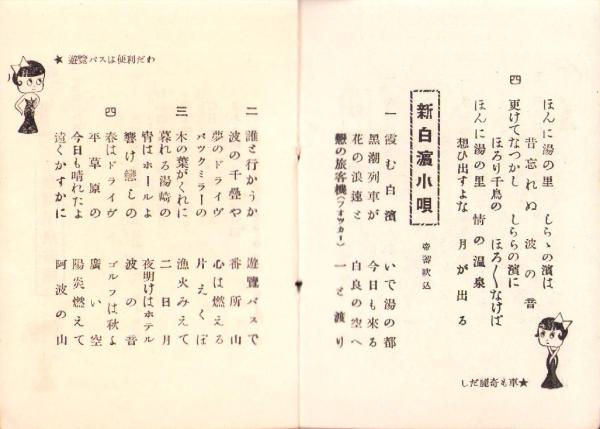 ほんに湯の里　しらゝの濱は
昔忘れぬ　波の音
四
更けてなつかし　しららの濱に
ほろり千鳥の　ほろ〳〵なけば
ほんに湯の里　情の温泉
想ひ出すよな　月が出る
新白濱小唄
一
霞む白濱　いで湯の都
黒潮列車が　今日も来る
花の浪速と　白良の空へ
戀の旅客機(フオツカー)　一と渡り
車も奇麗だし★
★遊覽バスは便利だわ
二
誰と行かうか　遊覽バスで
波の千疊や　番所山
夢のドライヴ　心は燃える
バツクミラーの　片えくぼ
三
木の葉がくれに　漁火みえて
暮れる湯崎の　二日月
宵はホールよ　夜明けはホテル
響け戀しの　波の音
四
春はドライヴ　ゴルフは秋よ
平草原の　廣い空
今日も晴れたよ　陽炎燃えて
遠くかすかに　阿波の山